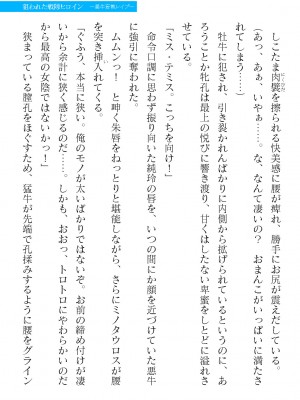 狙われた戦闘ヒロイン
しこたま肉襞を擦られる快美感に腰が痺れ、勝手にお尻が震えだしている。
「あっ、あぁ、いやぁ……。な、なんて凄いの? おまんこがいっぱいに満たさ
れてしまう……」
牡牛に犯され、引き裂かれんばかりに内側から拡げられているというのに、あ
ろうことか牝孔は最上の悦びに響き渡り、甘くはしたない卑蜜をしとどに溢れさ
せている。
「ミス・テミス。こっちを向け!」
命令口調に思わず振り向いた純玲の唇を、いつの間にか顔を近づけていた悪牛
に強引に奪われた。
ムムンっ! と呻く朱唇をねっとりと堪能しながら、さらにミノタウロスが腰
を突き挿入れてくる。
「ぐふう、本当に狭い。俺のモノが太いばかりではないぞ。お前の締め付けが凄
いから余計に狭く感じるのだ……。しかも、おおっ、トロトロにやわらかいのだ
から最高の女陰ではないかっ!」
狭まっている膣孔をほぐすため、猛牛が先端で孔揉みするように腰をグライン